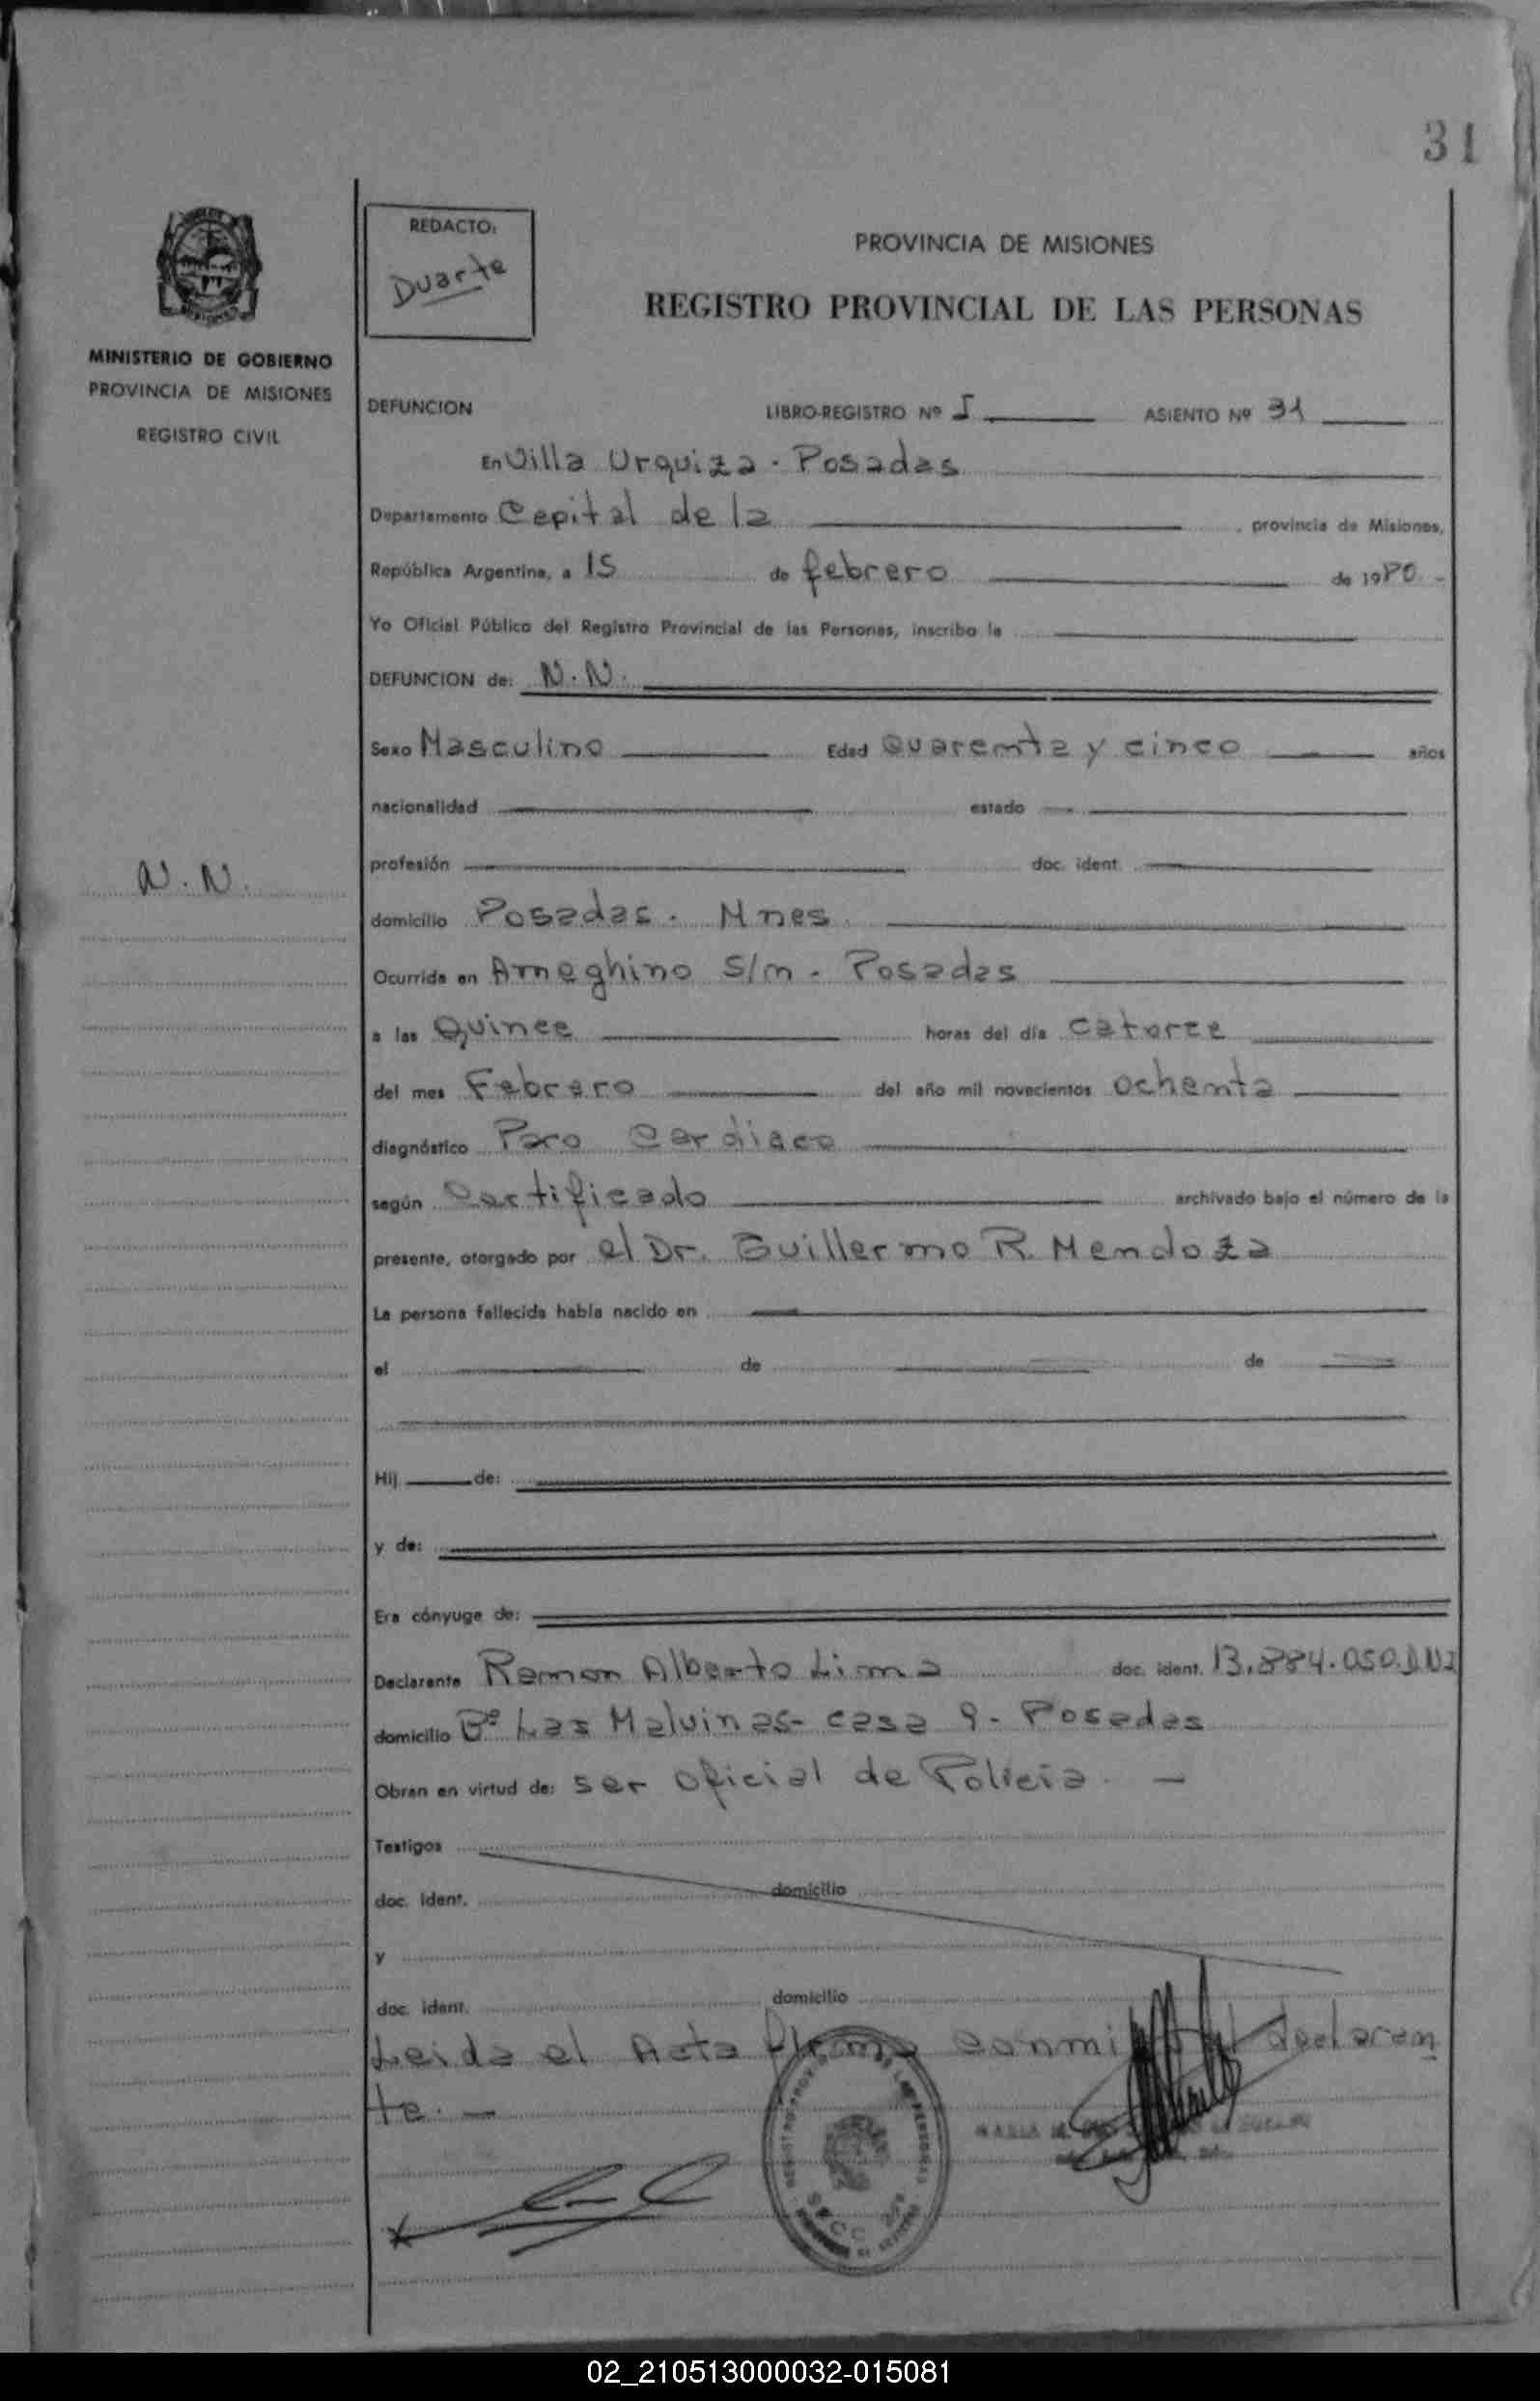 31
REDACTO:
Duarte
PROVINCIA DE MISIONES
REGISTRO PROVINCIAL DE LAS PERSONAS
MINISTERIO DE GOBIERNO
PROVINCIA DE MISIONES
REGISTRO CIVIL
DEFUNCION LIBRO-REGISTRO Nº I ASIENTO Nº 31
En Villa Urquiza - Posadas
Departamento Capital de la , provincia de Misiones,
República Argentina, a 15 de febrero de 1980.-
Yo Oficial Público del Registro Provincial de las Personas, inscribo la
DEFUNCION de: N.N.
Sexo Masculino Edad Cuarenta y cinco años
nacionalidad estado
N.N.
profesión doc. ident.
domicilio Posadas. Mnes.
Ocurrida en Ameghino S/n - Posadas
a las Quince horas del día Catorce
del mes Febrero del año mil novecientos Ochenta
diagnóstico Paro Cardiaco
según Certificado archivado bajo el número de la
presente, otorgado por el Dr. Guillermo R. Mendoza
La persona fallecida había nacido en
el de de
Hij de:
y de:
Era cónyuge de:
Declarante Ramon Alberto Lima doc. ident. 13.884.050
domicilio Bº Las Malvinas- casa 9 - Posadas
Obran en virtud de: ser Oficial de Policia. -
Testigos
doc. ident. domicilio
y
doc. ident. domicilio
Leida el Acta firma conmigo el declaran
te. -
02_210513000032-015081